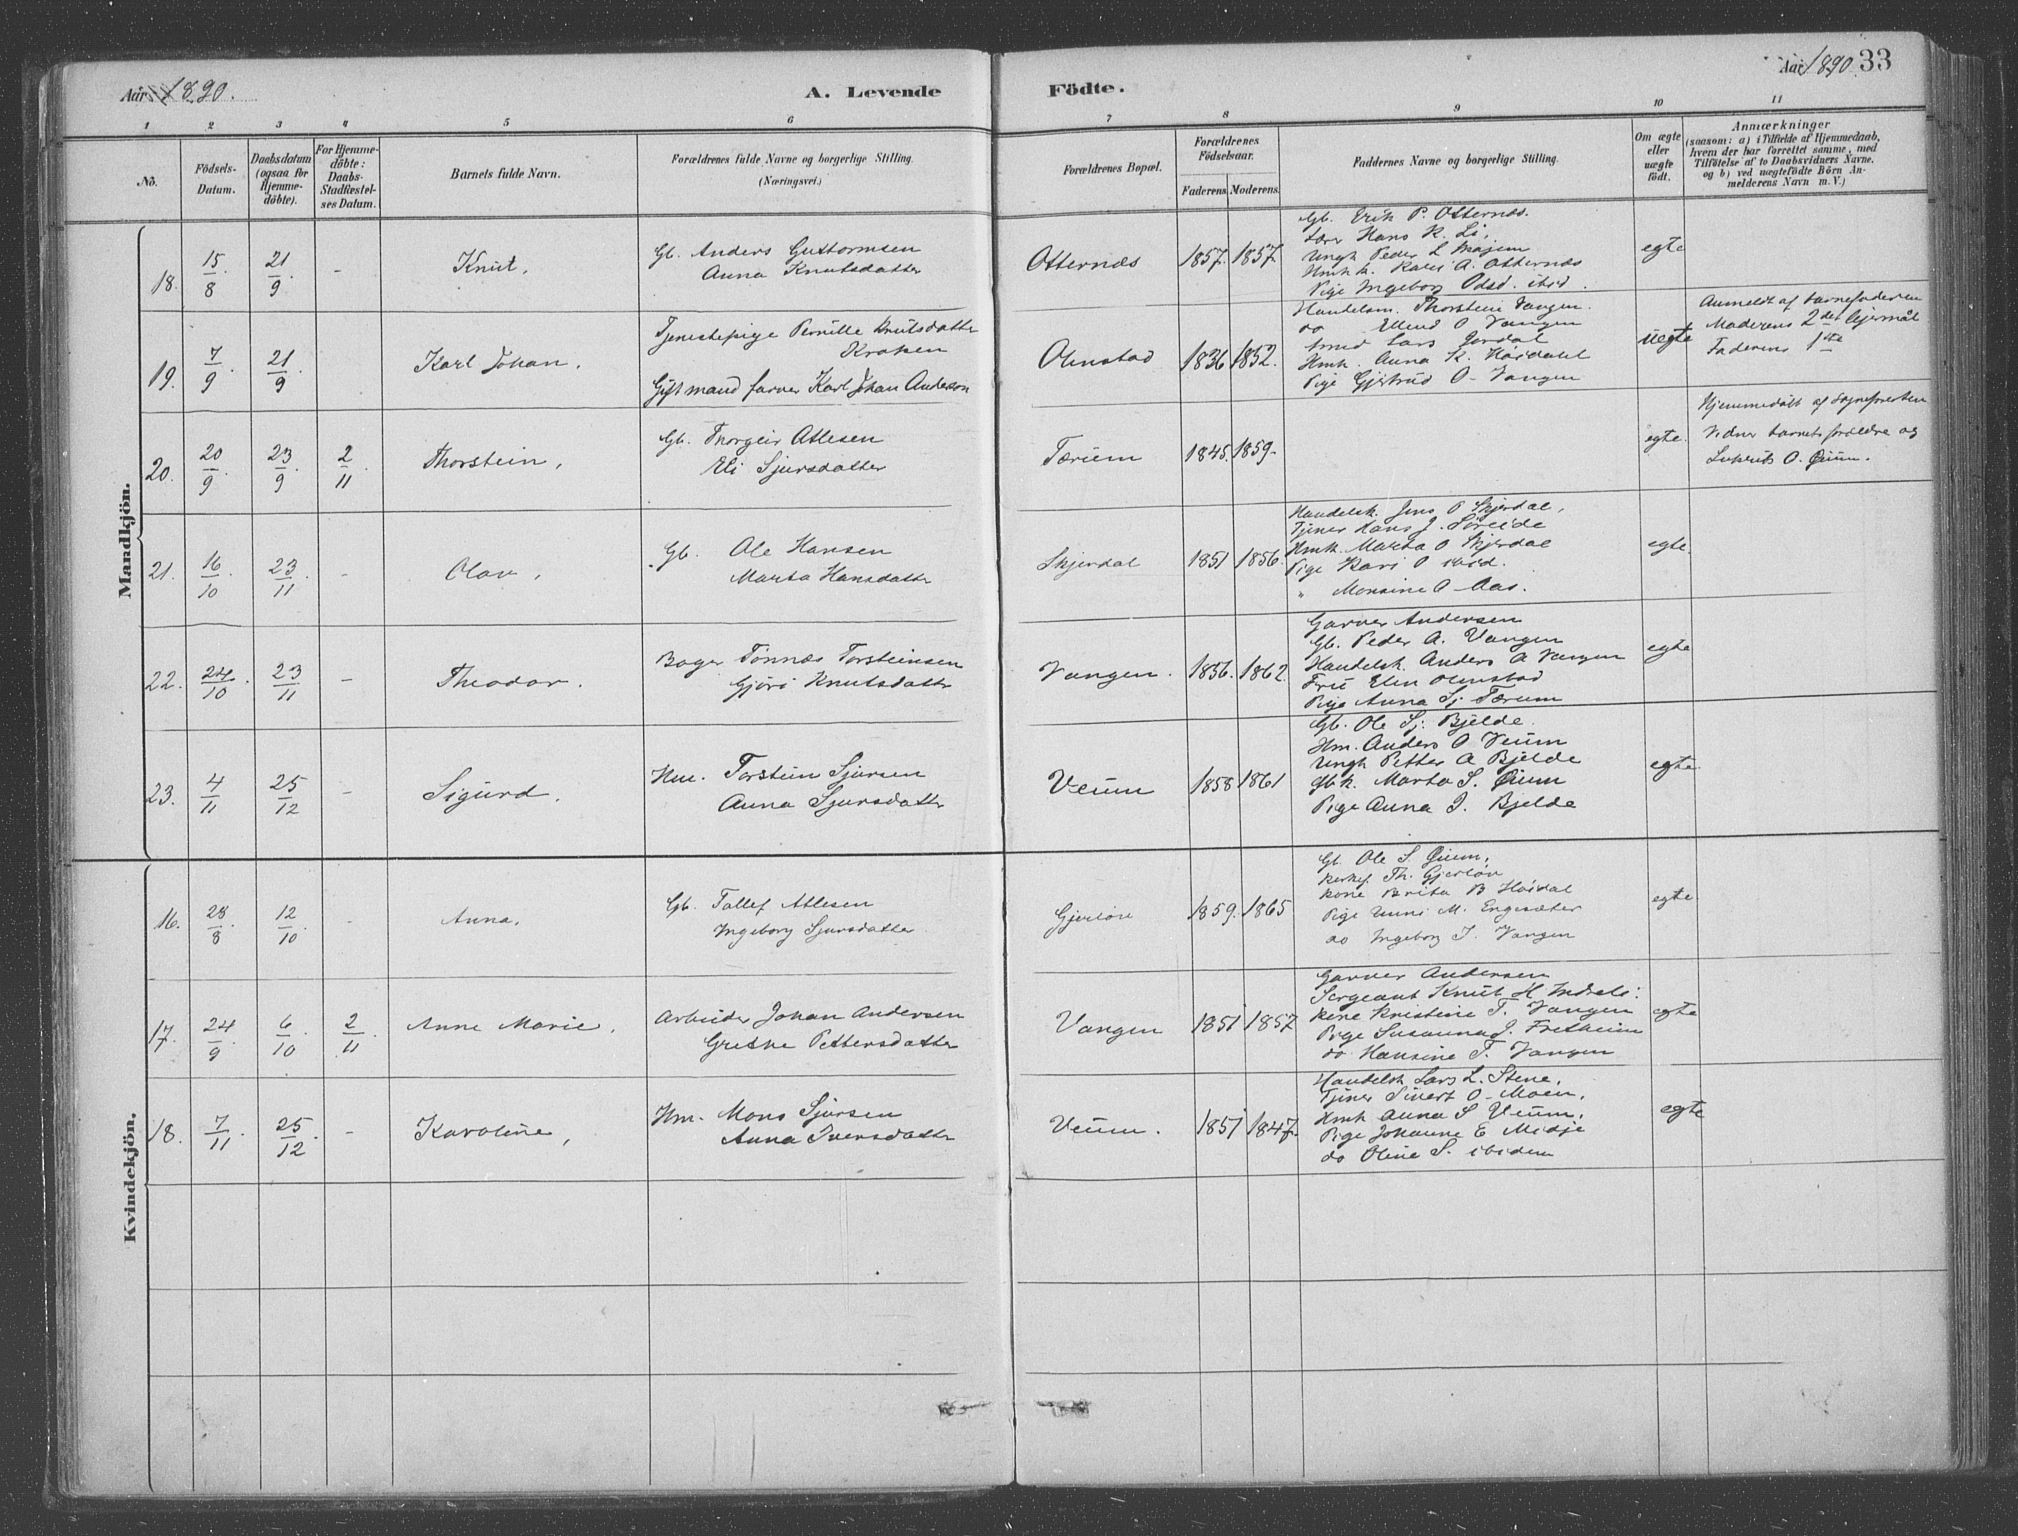 Aar 1890.
A. Levende
Födte.
Aar 1890. 33
1 2 3 4 5 6 7 8 9 10 11
No.
Födsels-
Datum.
Daabsdatum
(ogsaa for
Hjemme-
döbte).
For Hjemme-
döbte:
Daabs-
Stadfæstel-
ses Datum.
Barnets fulde Navn.
Forældrenes fulde Navne og borgerlige Stilling.
(Næringsvei.)
Forældrenes Bopæl.
Forældrenes
Födselsaar.
Faderens. Moderens.
Faddernes Navne og borgerlige Stilling.
Om ægte
eller
uægte
födt.
Anmærkninger
(saasom: a) i Tilfælde af Hjemmedaab,
hvem der har forrettet samme, med
Tilföielse af to Daabsvidners Navne.
og b) ved uægtefödte Börn An-
melderens Navn m. V.)
Mandkjön.
18. 15/8 21/9 - Knut.
Gb. Anders Guttormsen
Anna Knutsdatter
Otternæs 1857. 1857.
Gb. Erik P. Otternæs.
Lær Hans K. Li,
Ungk Peder L
Hmk Kari A. Otternæs
Pige Ingeborg Odsd. ibid.
egte
19. 7/9. 21/9. Karl Johan.
Tjenestepige Pernille Knutsdatter
Kroken
Gift mand farver Karl Johan Anderson
Olnstad 1836 1852.
Handelsm. Thorstein Vangen.
do Ellend O Vangen
Smed Lars Jordal
Hmk. Anna K. Höidahl
Pige Gjertrud O. Vangen
uegte
Anmeldt af barnefaderen
Moderens 2det leiermål
Faderens 1ste
20. 20/9. 23/9 2/11. Thorstein,
Gb. Thorgeir Atlesen
Eli Sjursdatter
Tærum 1845. 1859.
egte.
Hjemmedöbt af Sognepresten
Vidner barnets forældre og
O. Qium.
21. 16/10. 23/11. - Olav,
Gb. Ole Hansen
Marta Hansdatter
Skjerdal 1851 1856.
Handelsk. Jens O Skjerdal,
Tjener Hans J. Soreide
Hmk. Marta O Skjerdal
Pige Kari O ibid.
" Monsine O Aas.
egte.
22. 24/10. 23/11 - Theodor.
Bager Tönnæs Torsteinsen
Gjöri Knutsdatter
Vangen. 1856. 1862.
Garver Andersen
Gb. Peder A. Vangen
Handelsk. Anders A Vangen
Fru Elen Olnstad
Pige Anna Sj Tærum
egte
23. 4/11 25/12 - Sigurd.
Hm. Torstein Sjursen
Anna Sjursdatter
Veum 1858 1861
Gb. Ole Sj. Bjelde.
Hm. Anders O Veum
Ungk Petter A Bjelde
Gbk. Marta S. Qium
Pige Anna J. Bjelde
egte.
Kvindekjön.
16. 28/8. 12/10. - Anna.
Gb. Tollef Atlesen
Ingeborg Sjursdatter
Gjerlöw 1859. 1865.
Gb. Ole S. Qium,
Th. Gjerlöw
Kone Brita B Höidal
Pige Unni M. Engesæter
do Ingeborg J. Vangen
egte
17. 24/9 6/10 2/11. Anne Marie,
Arbeider Johan Andersen
Grethe Pettersdatter
Vangen 1851 1857
Garver Andersen
Sergeant Knut H Indreli:
Kone Kristine T. Vangen
Pige Susanna J. Fretheim
do Hansine T. Vangen
egte
18. 7/11 25/12. - Karoline,
Hm. Mons Sjursen
Anna Iversdatter
Veum. 1851 1847.
Handelsk Lars L. Stene,
Tjener Sivert O. Moen,
Hmk Anna S Veum,
Pige Johanne E Midje
do Oline S. ibidem
egte